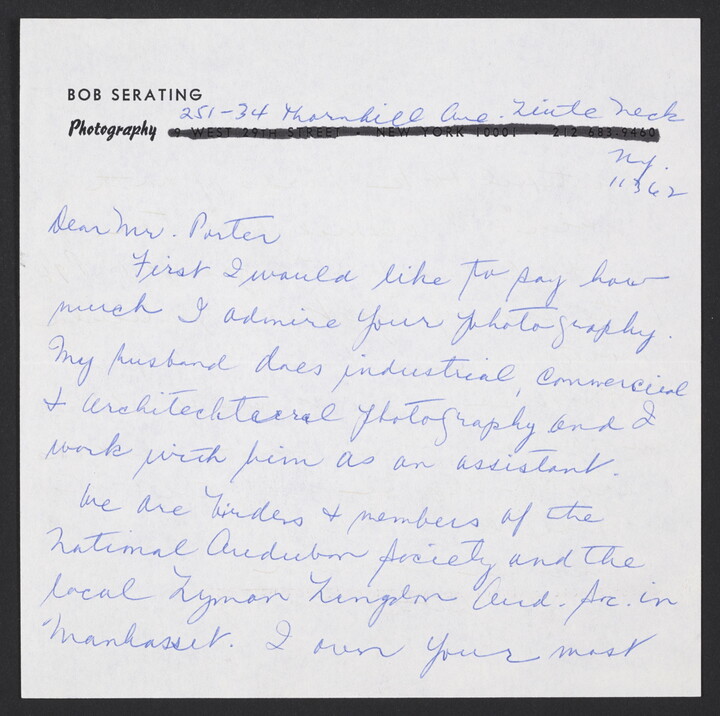 BOB SERATING
251-34 Thornhill Ave. Little Neck
Photography 9 WEST 29TH STREET · NEW YORK 10001 · 212 683-9460
Ny.
11362
Dear Mr. Porter
First I would like to say how
much I admire your photography.
My husband does industrial, commercial
& architechtural photography and I
work with him as an assistant.
We are birders & members of the
National Audubon Society and the
local Lyman Langdon Aud. Soc. in
Manhasset. I own your most